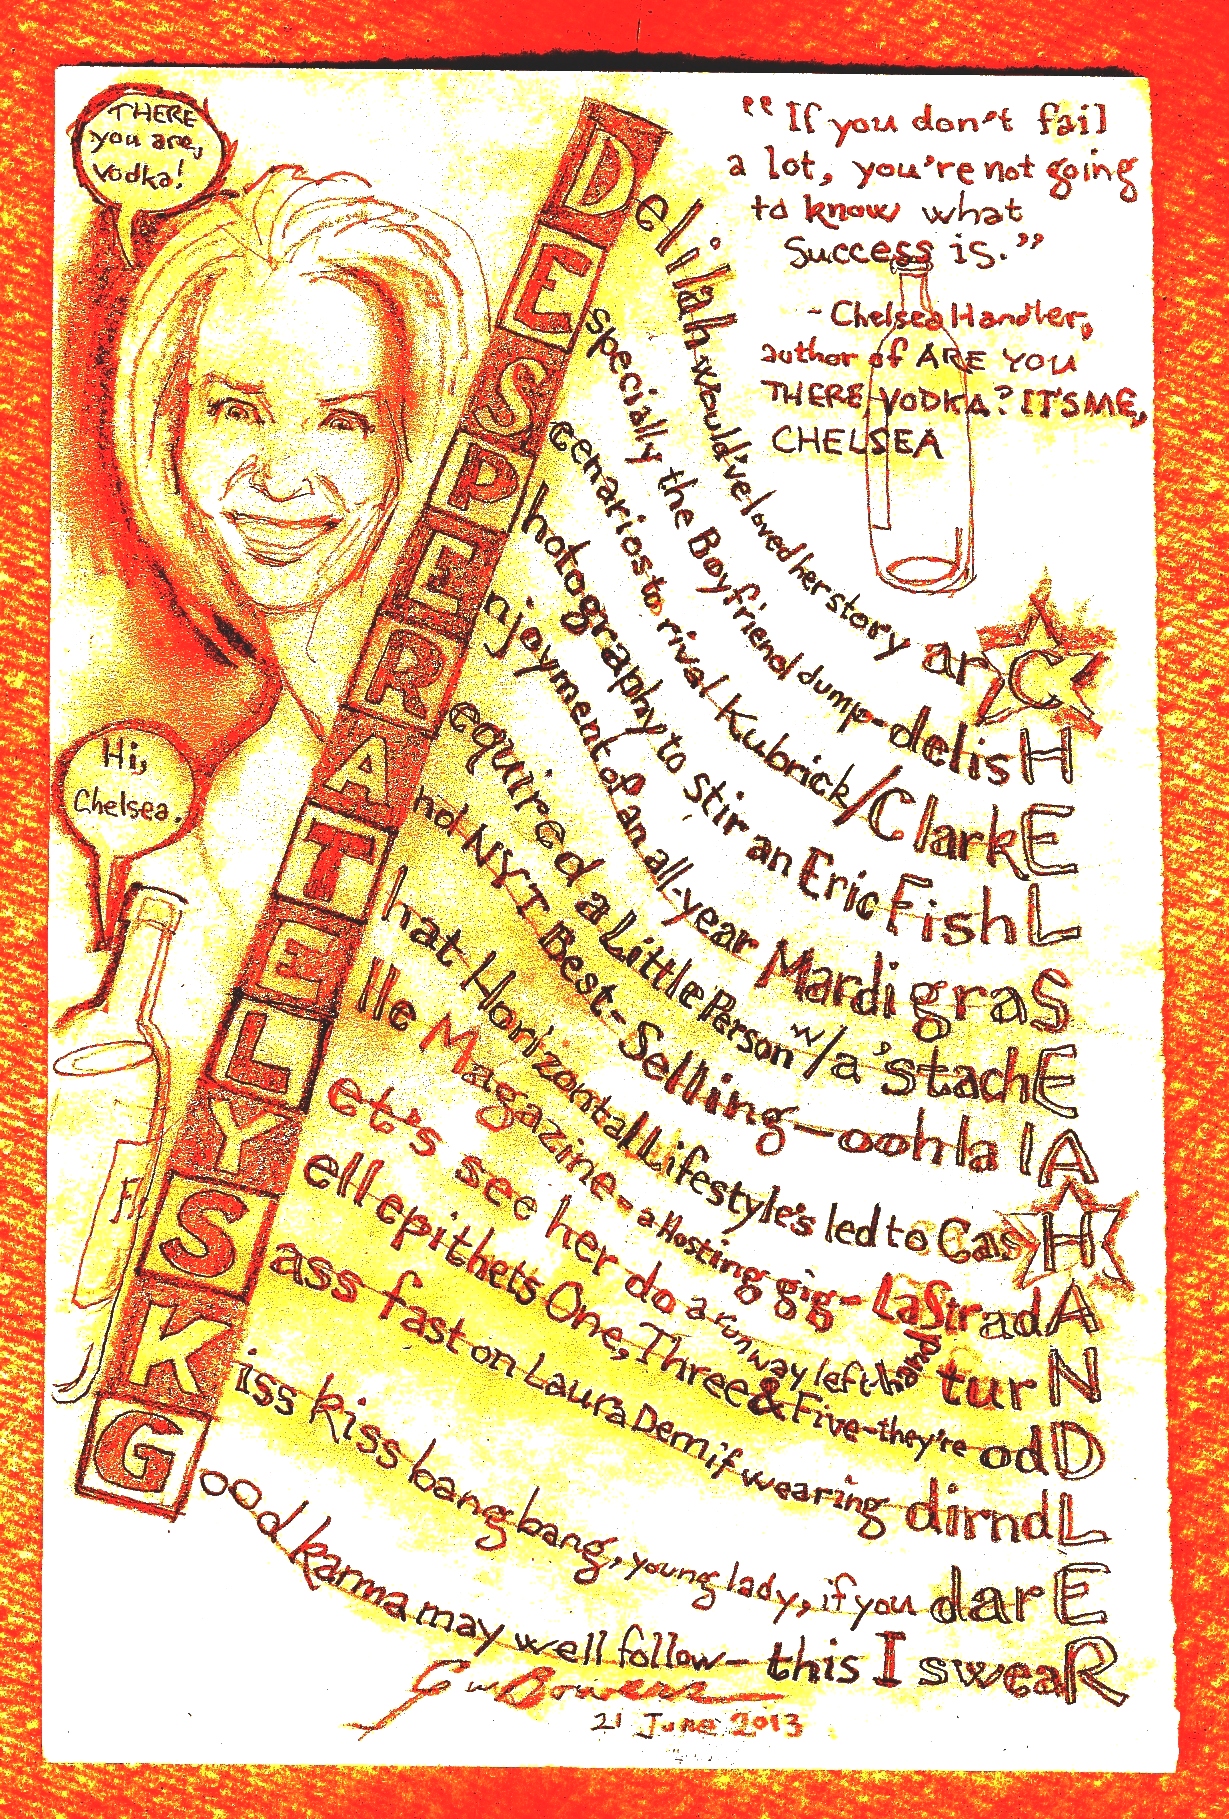 THERE
you are,
Vodka!
"If you don't fail
a lot, you're not going
to know what
success is."
- Chelsea Handler,
author of ARE YOU
THERE, VODKA? IT'S ME,
CHELSEA
Hi,
Chelsea.
Delilah would've loved her story arC
Especially the Boyfriend dump-delisH
Scenarios to rival Kubrick/ClarkE
Photography to stir an Eric FishL
Enjoyment of an all-year Mardi graS
Required a Little Person w/a 'stachE
And NYT Best-Selling—ooh la lA
That Horizontal Lifestyle's led to CasH
Elle Magazine-a Hosting gig-La StradA
Let's see her do a runway left-hand turN
Yell epithets One, Three & Five-they're odD
Sass fast on Laura Dern if wearing dirndL
Kiss kiss bang bang, young lady, if you darE
Good karma may well follow-this I sweaR
GwBowers
21 June 2013